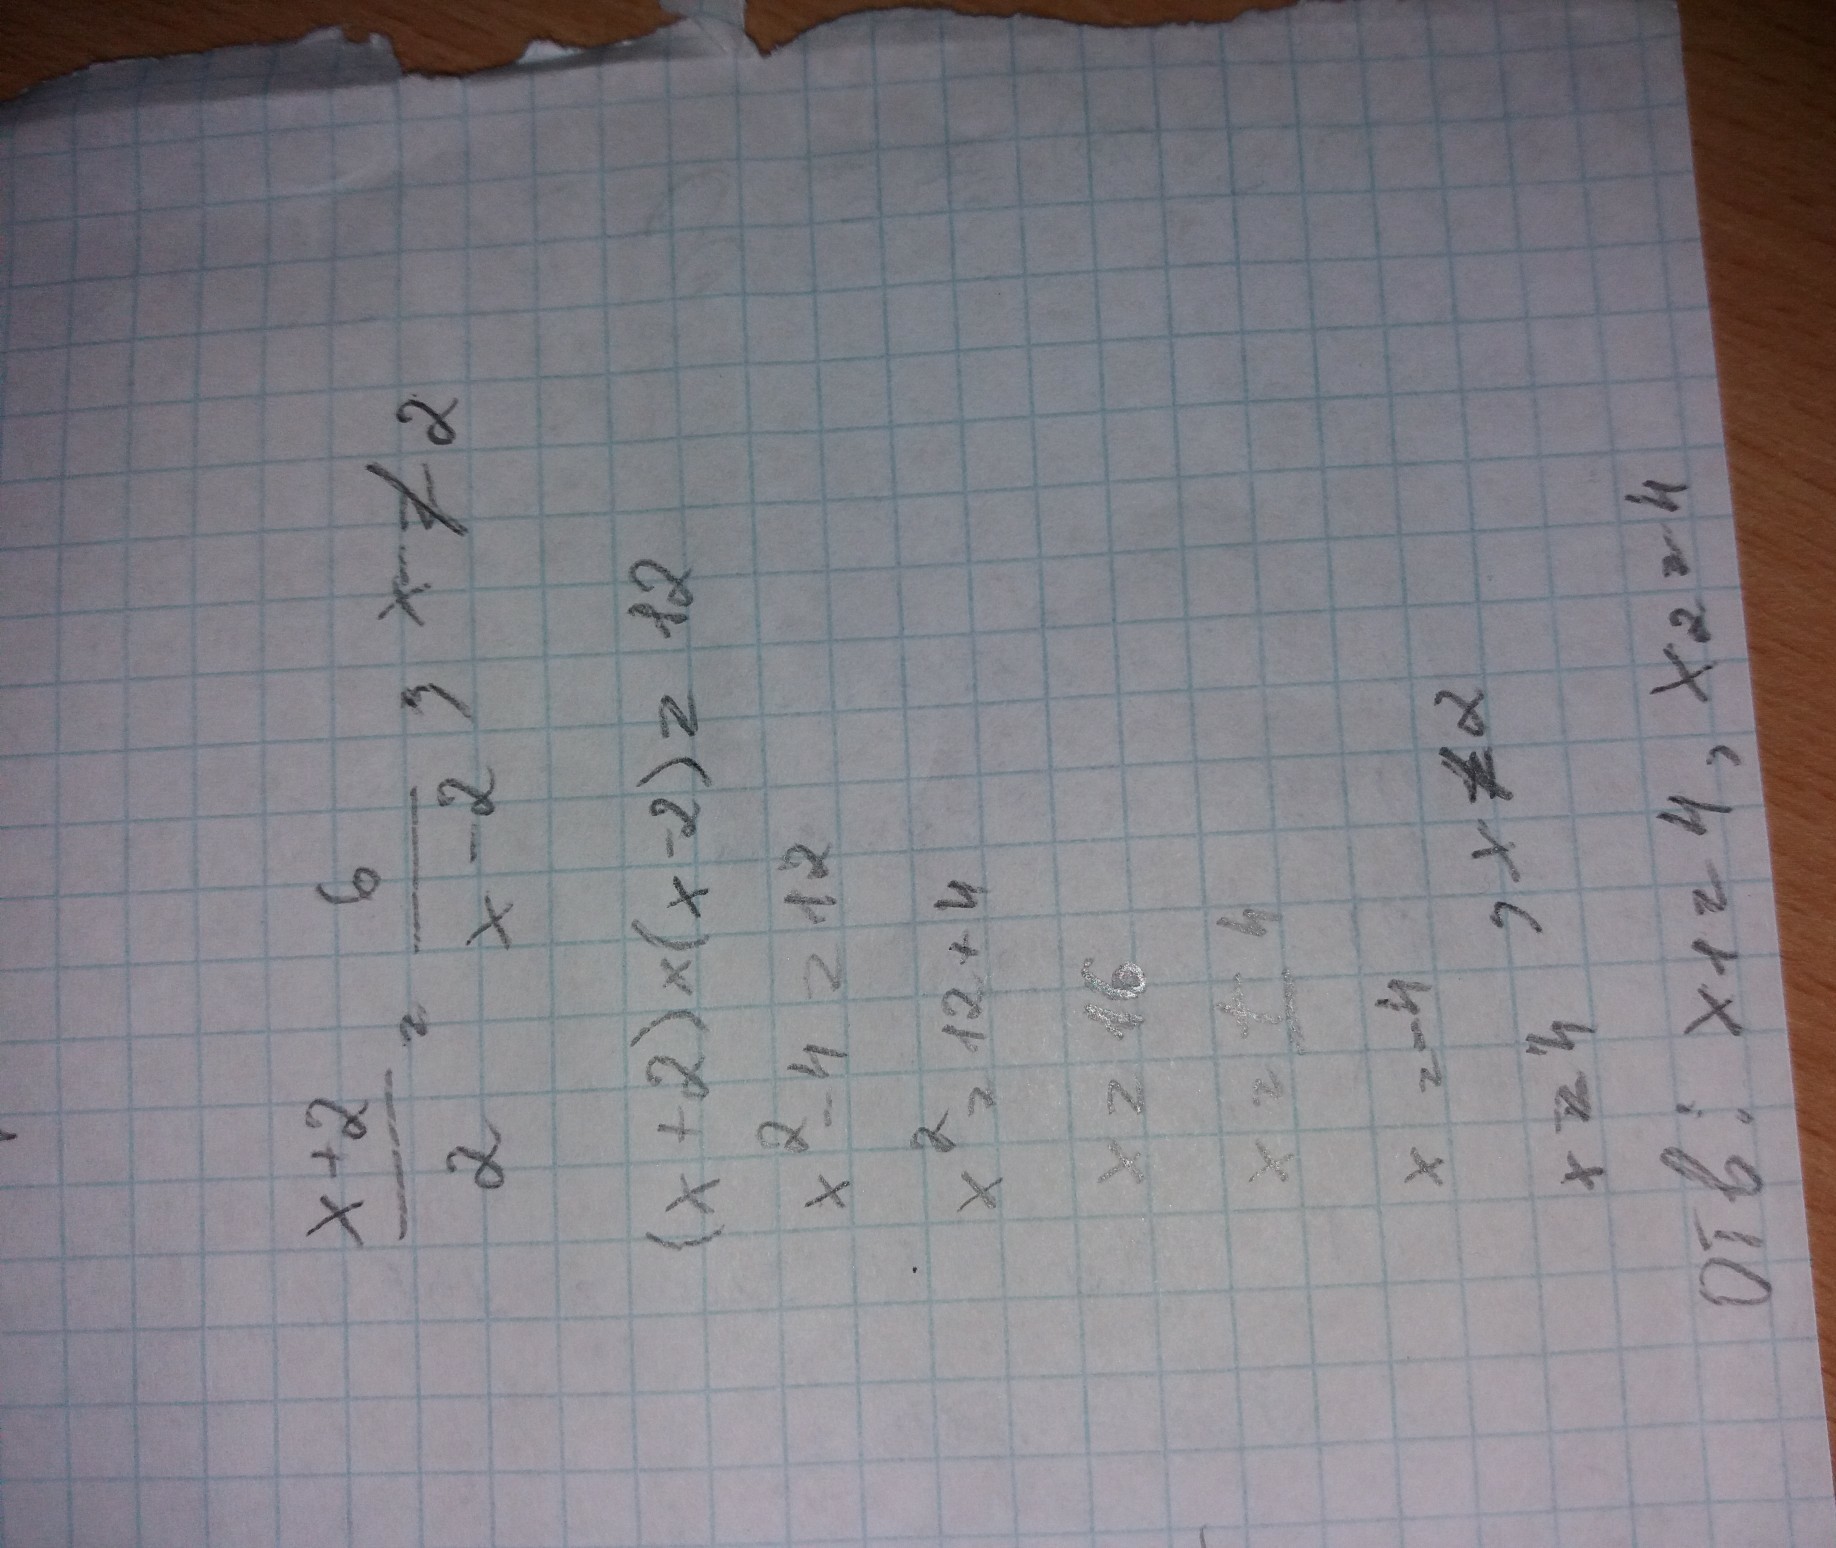 x+2 6
— = — , x ≠ 2
2 x-2
(x+2)x(x-2)=12
x²-4=12
x²=12+4
x=16
x=±4
x=-4
x=4 , x≠2
Отв: x1=4, x2=-4